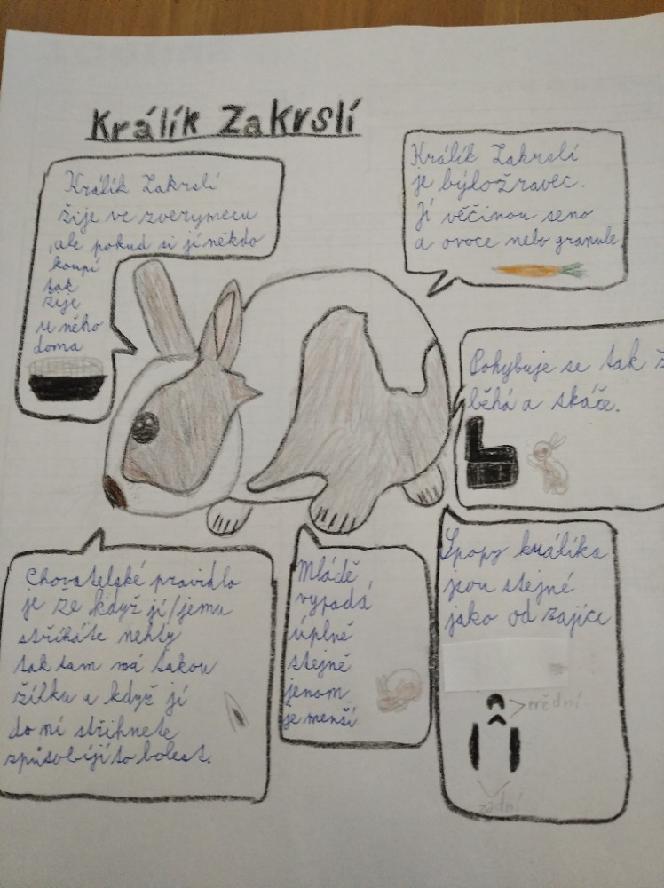 Králík Zakrslí
Králík Zakrslí
žije ve zverymecu
ale pokud si jí někdo
koupí
tak
žije
u něho
doma
Králík Zakrslí
je býložravec.
Jí věčinou seno
a ovoce nebo granule
Pohybuje se tak ž
běhá a skáče.
Chovatelské pravidlo
je že když jí/jemu
stříháte nehty
tak tam má takou
žílku a když jí
do ní střihnete
způsobíjí to bolest.
Mládě
vypadá
úplně
stejně
jenom
je menší
Stopy králíka
jsou stejné
jako od zajíce
přední
zadní